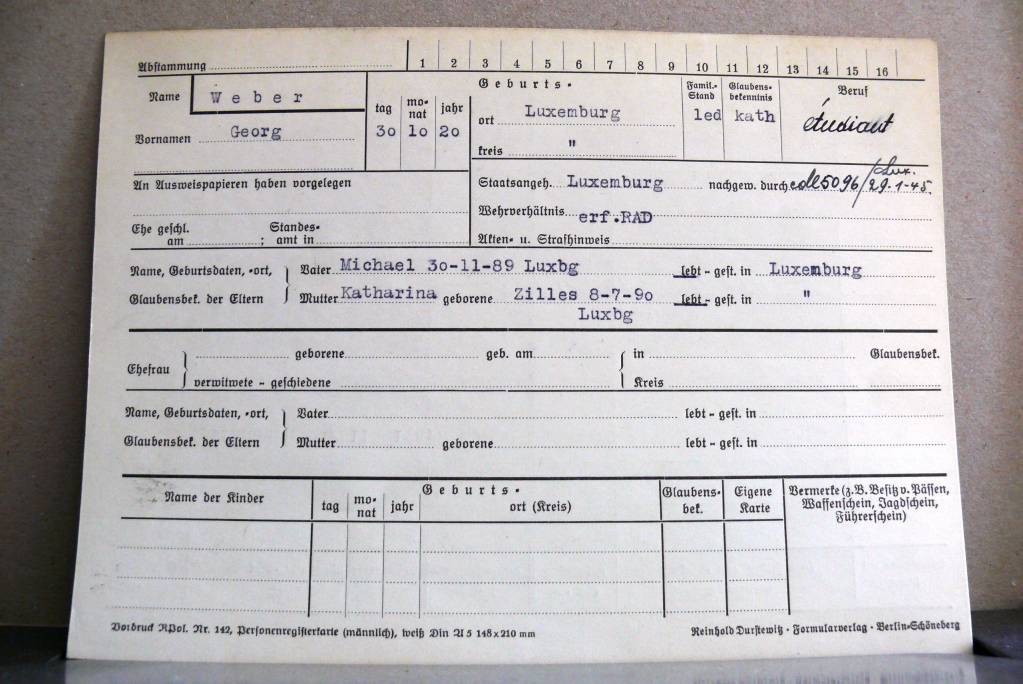 Abstammung 1 2 3 4 5 6 7 8 9 10 11 12 13 14 15 16
Name Weber
Vornamen Georg
Geburts-
tag monat jahr
30 10 20
ort Luxemburg
kreis "
Famil.-Stand
led
Glaubens-bekenntnis
kath
Beruf
étudiant
An Ausweispapieren haben vorgelegen
Ehe geschl. Standes-
am ; amt in
Staatsangeh. Luxemburg nachgew. durch cdl 5096/Lux. 29-1-45.
Wehrverhältnis erf.RAD
Akten- u. Strafhinweis
Name, Geburtsdaten, -ort, Vater Michael 30-11-89 Luxbg lebt - gest. in Luxemburg
Glaubensbek. der Eltern Mutter Katharina geborene Zilles 8-7-90 lebt - gest. in "
Luxbg
Ehefrau geborene geb. am in Glaubensbek.
verwitwete - geschiedene Kreis
Name, Geburtsdaten, -ort, Vater lebt - gest. in
Glaubensbek. der Eltern Mutter geborene lebt - gest. in
Name der Kinder
Geburts-
tag monat jahr ort (Kreis)
Glaubens-bek.
Eigene Karte
Vermerke (z. B. Besitz v. Pässen,
Waffenschein, Jagdschein,
Führerschein)
Vordruck RPol. Nr. 142, Personenregisterkarte (männlich), weiß Din A 5 148 x 210 mm
Reinhold Durstewitz · Formularverlag · Berlin-Schöneberg